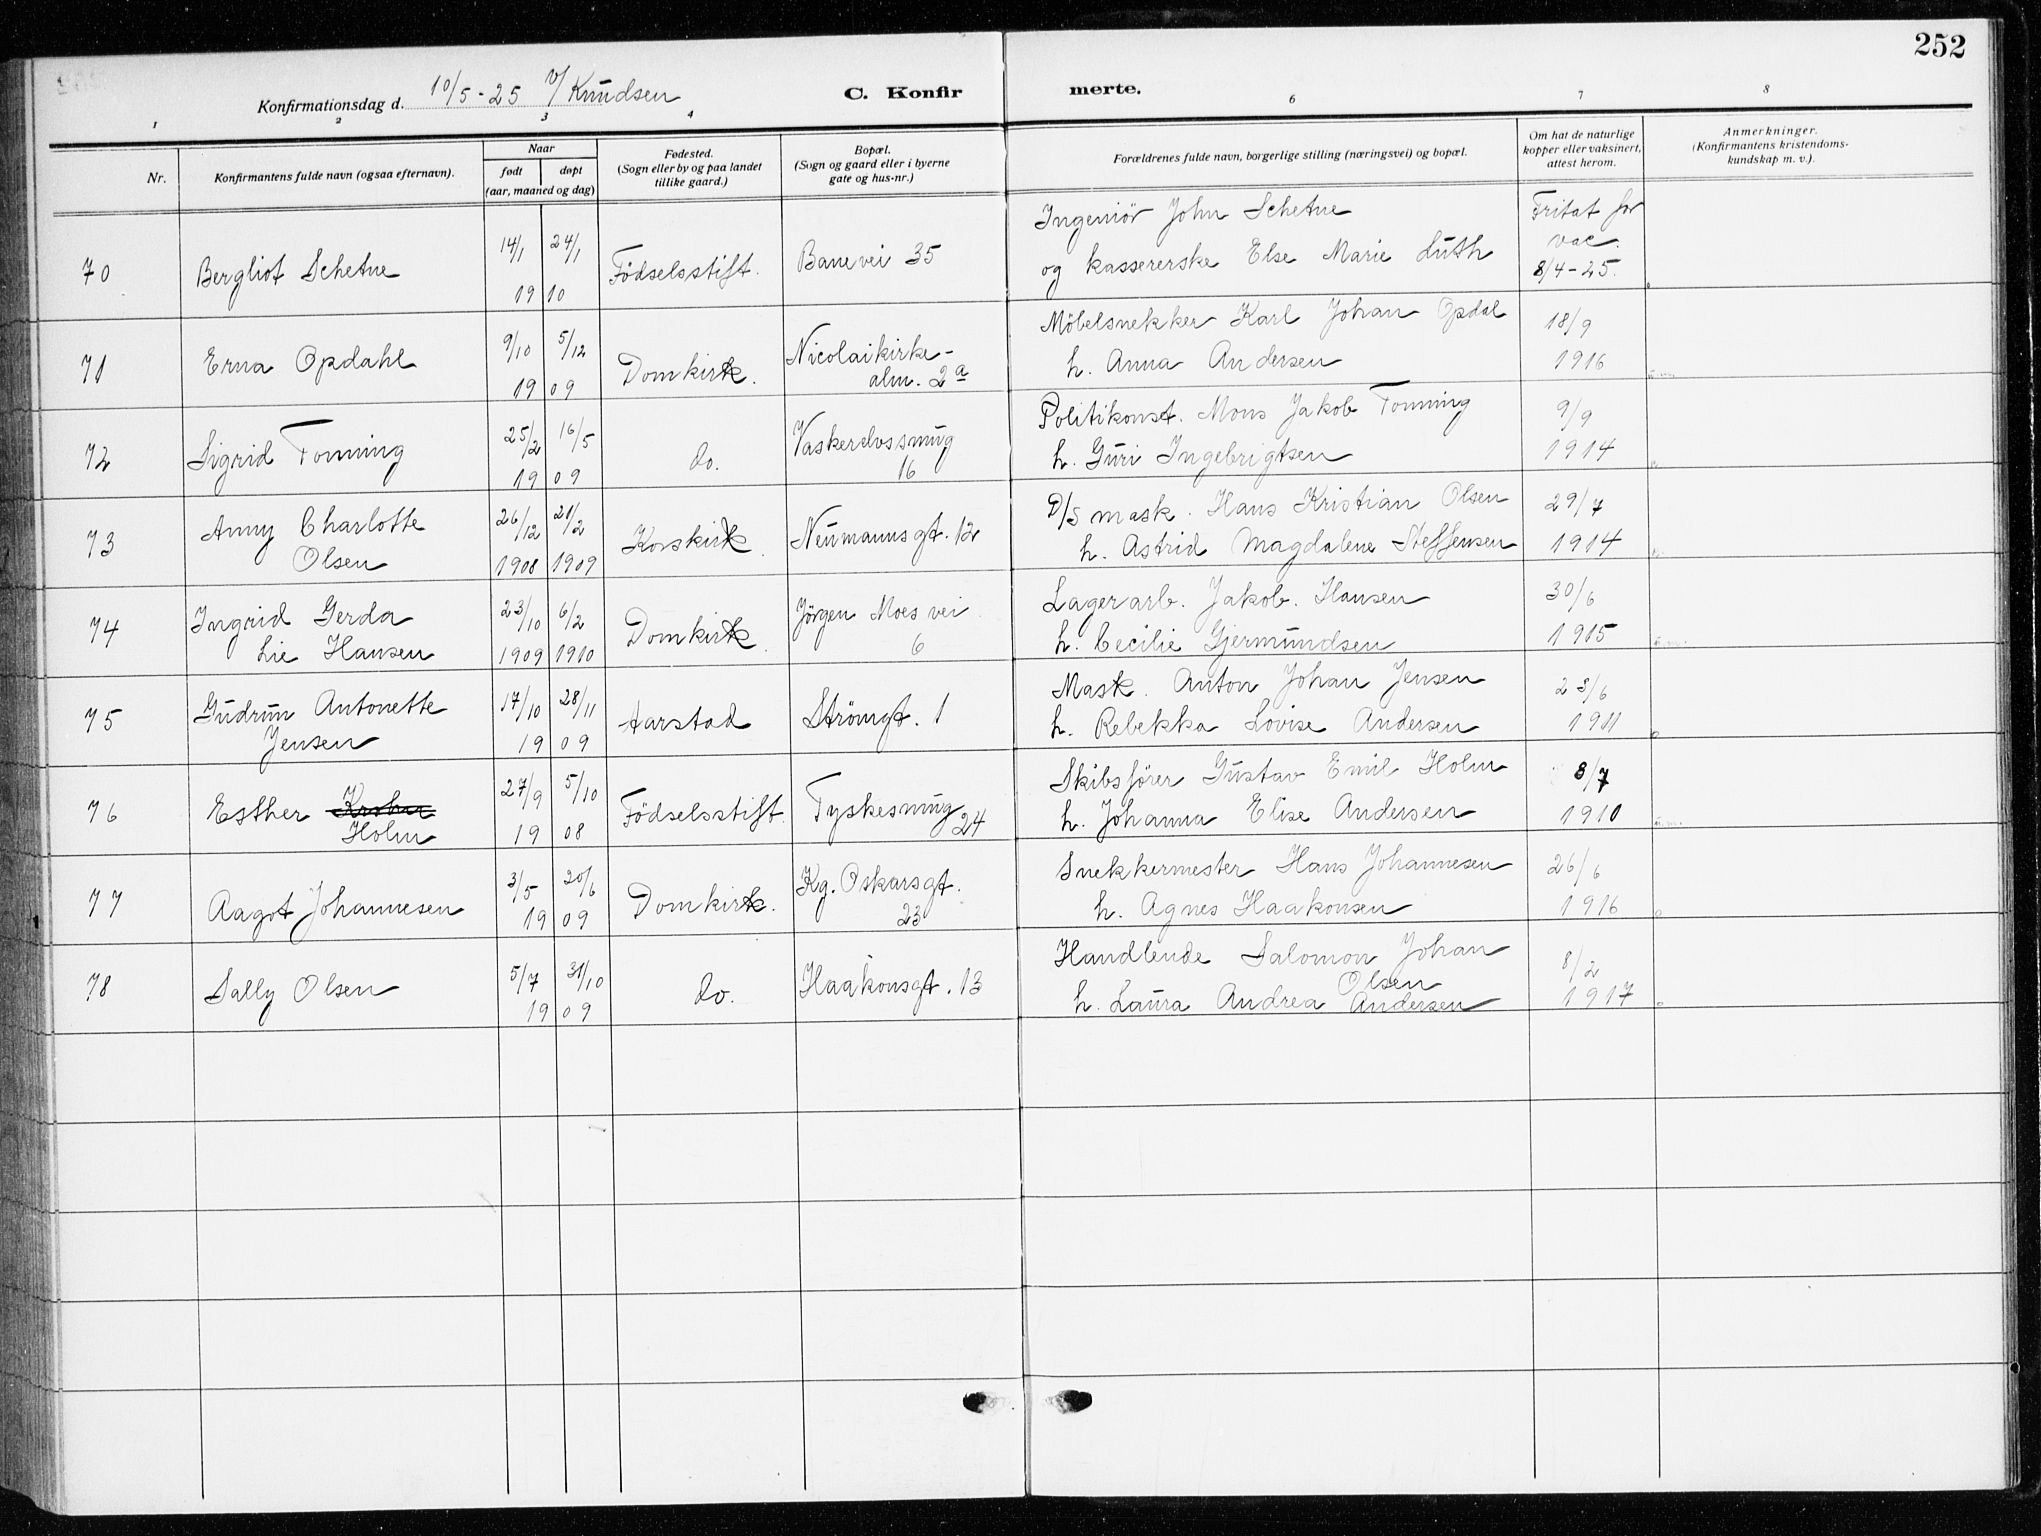 252
Konfirmationsdag d. 10/5-25 v/ Knudsen
C. Konfir merte.
1 2 3 4 6 7 8
Nr.
Konfirmantens fulde navn (ogsaa efternavn).
Naar
født døpt
(aar, maaned og dag)
Fødested.
(Sogn eller by og paa landet
tillike gaard.)
Bopæl.
(Sogn og gaard eller i byerne
gate og hus-nr.)
Forældrenes fulde navn, borgerlige stilling (næringsvei) og bopæl.
Om hat de naturlige
kopper eller vaksinert,
attest herom.
Anmerkninger.
(Konfirmantens kristendoms-
kundskap m. v.).
70 Bergliot Schetne 14/1 24/1 1910 Födselsstift. Banevei 35
Ingeniör John Schetne
og kassererske Else Marie Luth
Fritat for
vac.
8/4-25.
71 Erna Opdahl 9/10 5/12 1909 Domkirk. Nicolaikirke-
alm. 2a
Möbelsnekker Karl Johan Opdal
h. Anna Andersen
18/9
1916
72 Sigrid Tonning 25/2 16/5 1909 do. Vaskerelvssmug
16
Politikonst. Mons Jakob Tonning
h. Guri Ingebrigtsen
9/9
1914
73 Anny Charlotte
Olsen
26/12 21/2
1908 1909
Korskirk. Neumannsgt. 12
D/S mask. Hans Kristian Olsen
h. Astrid Magdalene Steffensen
29/7
1914
74 Ingrid Gerda
Lie Hansen
23/10 6/2
1909 1910
Domkirk. Jörgen Moes vei
6
Lagerarb. Jakob. Hansen
h. Cecilie Gjermundsen
30/6
1915
75 Gudrun Antonette
Jensen
17/10 28/11
1909
Aarstad Strömgt. 1
Mask. Anton Johan Jensen
h. Rebekka Lovise Andersen
23/6
1911
76 Esther
Holm
27/9 5/10
1908
Födselsstift. Tyskesmug
24
Skibsförer Gustav Emil Holm
h. Johanna Elise Andersen
8/7
1910
77 Aagot Johannesen 3/5 20/6 1909 Domkirk. Kg. Oskarsgt.
23
Snekkermester Hans Johannesen
h. Agnes Haakonsen
26/6
1916
78 Sally Olsen 5/7 31/10 1909 do. Haakonsgt. 13
Handlende Salomon Johan
Olsen
h. Laura Andrea Andersen
8/2
1917